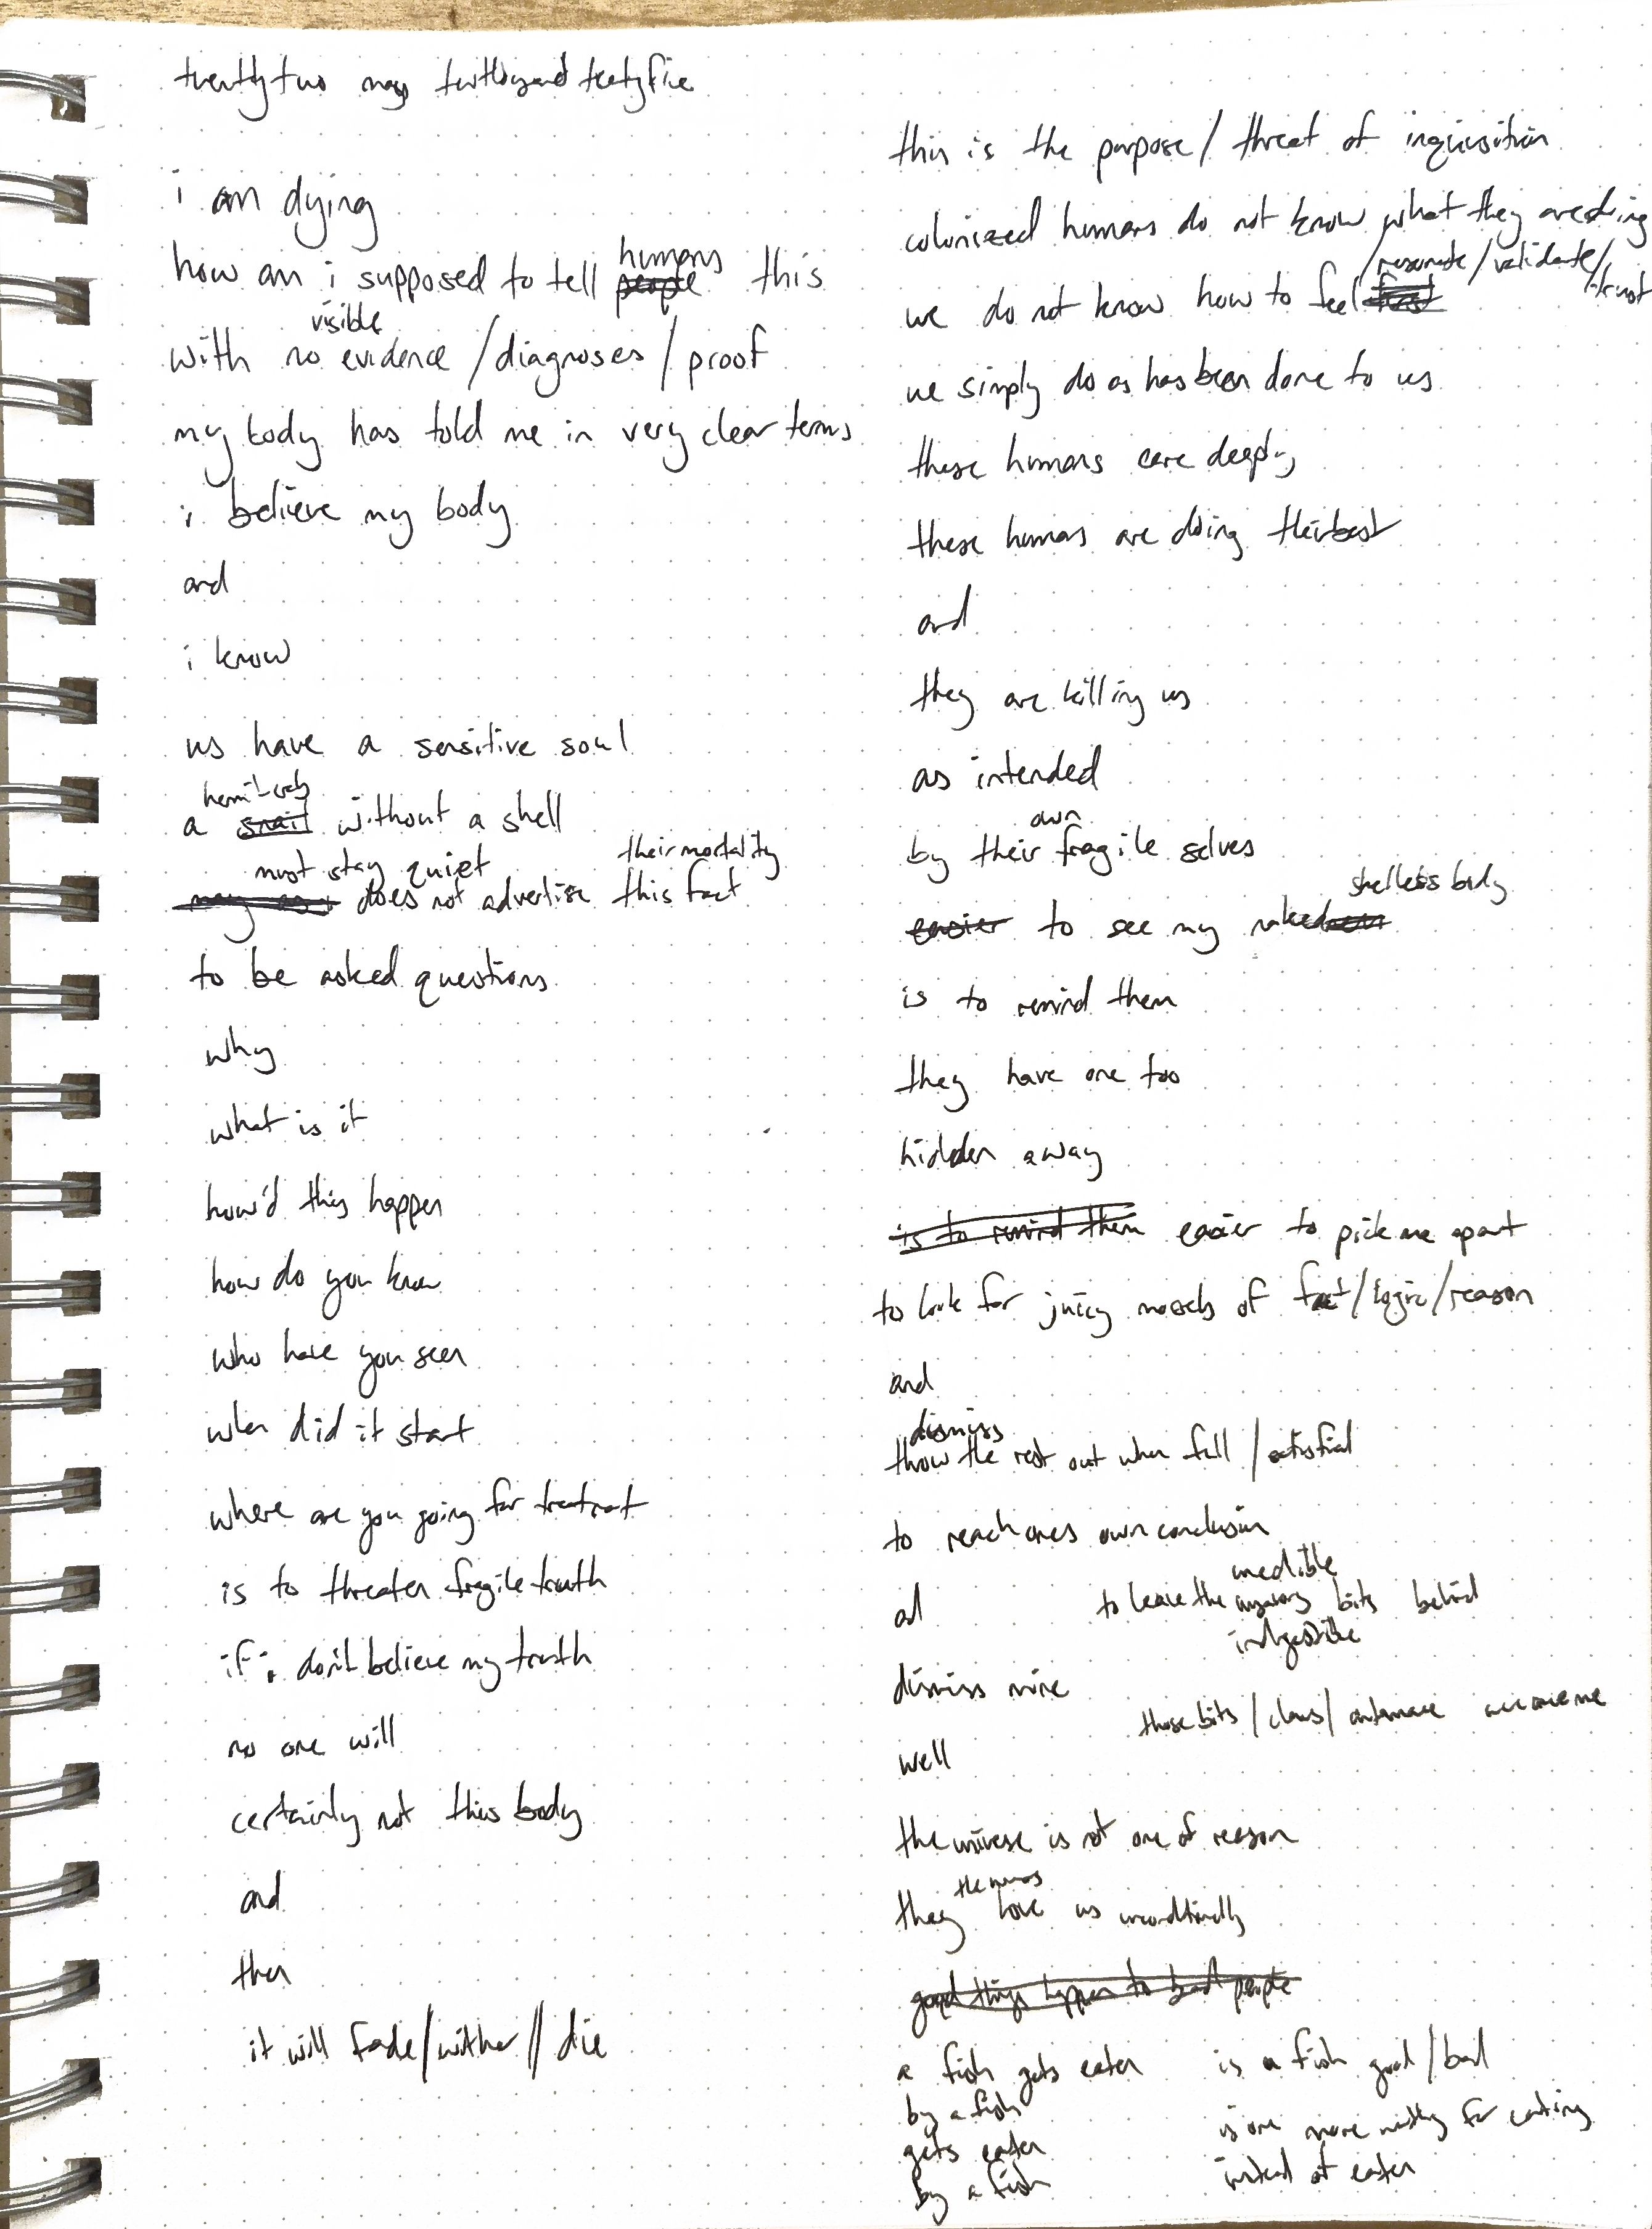 twenty two may twothousand twentyfive
i am dying
how am i supposed to tell people humans this
with no visible evidence / diagnoses / proof
my body has told me in very clear terms
i believe my body
and
i know
us have a sensitive soul
hermit-crab
a snail without a shell
must stay quiet their mortality
does not advertise this fact
to be asked questions
why
what is it
how'd this happen
how do you know
who have you seen
when did it start
where are you going for treatment
is to threaten fragile truth
if i don't believe my truth
no one will
certainly not this body
and
then
it will fade / wither // die
this is the purpose / threat of inquisition
colonized humans do not know what they are doing
/ resonate / validate / trust
we do not know how to feel
we simply do as has been done to us
these humans care deeply
these humans are doing their best
and
they are killing us
as intended
own
by their fragile selves
shelless body
easier to see my nakedness
is to remind them
they have one too
hidden away
is to remind them easier to pick me apart
to look for juicy morsels of fact / logic / reason
and
dismiss
throw the rest out when full / satisfied
to reach ones own conclusion
inedible
and to leave the bits behind
indigestible
dismiss mine
those bits / claws / antennae
well
the universe is not one of reason
they love us unconditionally
good things happen to bad people
a fish gets eaten
by a fish
gets eaten
by a fish
is a fish good / bad
is one more worthy for eating
instead of eaten